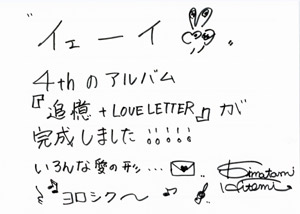 "イェーイ"
4thのアルバム
『追憶+LOVE LETTER』が
完成しました!!!!!
いろんな愛の形…
ヨロシク〜